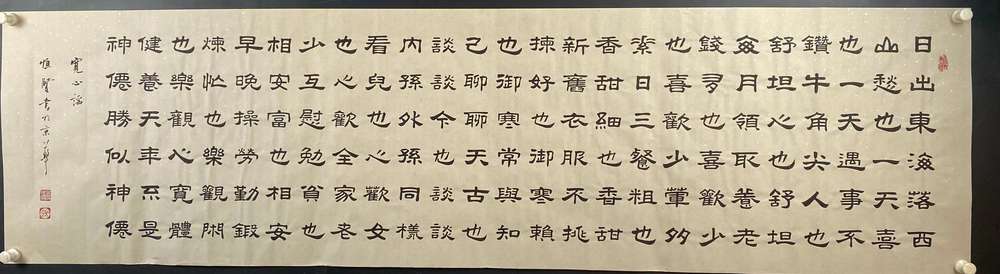 日出東海落西
山愁也一天喜
也一天遇事不
鑽牛角尖人也
舒坦心也舒坦
每月領取養老
錢多也喜歡少
也喜歡少葷多
素日三餐粗也
香甜細也香甜
新舊衣服不挑
揀好也御寒賴
也御寒常與知
己聊聊天古也
談談今也談談
內孫外孫同樣
看兒也心歡女
也心歡全家老
少互慰勉貧也
相安富也相安
早晚操勞勤鍛
煉忙也樂觀閑
也樂觀心寬體
健養天年不是
神僊勝似神僊
寬心謠
惟賢書於京